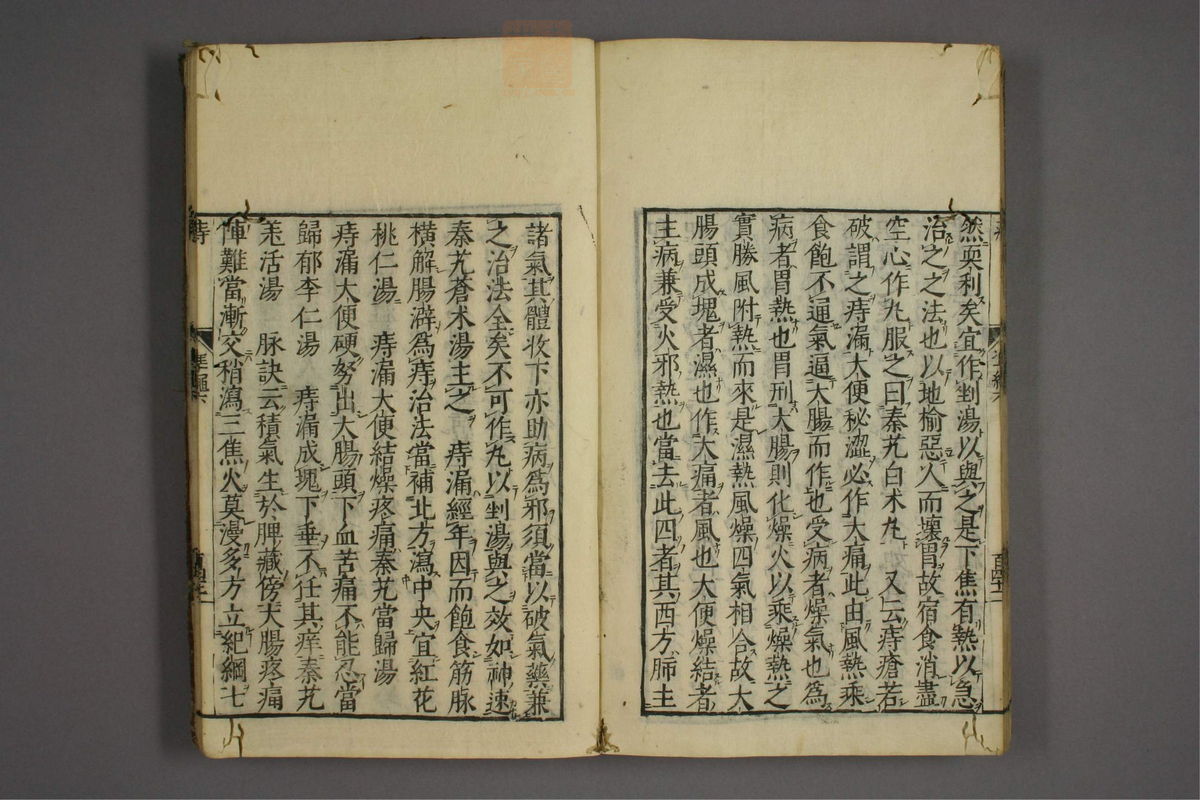 然㽷利矣宜作剉湯以與之是下焦有熱以急
治之之法也以地榆惡人而壞胃故宿食消盡
空心作丸服之曰秦艽白术丸　又云痔瘡若
破謂之痔漏大便秘澀必作大痛此由風熱乘
食飽不通氣逼大腸而作也受病者燥氣也爲
病者胃熱也胃刑大腸則化燥火以乘燥熱之
實勝風附熱而來是濕熱風燥四氣相合故大
腸頭成塊者濕也作大痛者風也大便燥結者
主病兼受火邪熱也當去此四者其西方肺主
諸氣其體收下亦助病爲邪須當以破氣藥兼
之治法全矣不可作丸以剉湯與之效如神速
秦艽蒼术湯主之　痔漏經年因而飽食筋脉
橫解腸澼爲痔治法當補北方瀉中央宜紅花
桃仁湯　痔漏大便結燥疼痛秦艽當歸湯
痔漏大便硬努出大腸頭下血苦痛不能忍當
歸郁李仁湯　痔漏成塊下垂不任其痒秦艽
羗活湯　脉訣云積氣生於脾藏傍大腸疼痛
陣難當漸交稍瀉三焦火莫漫多方立紀綱七